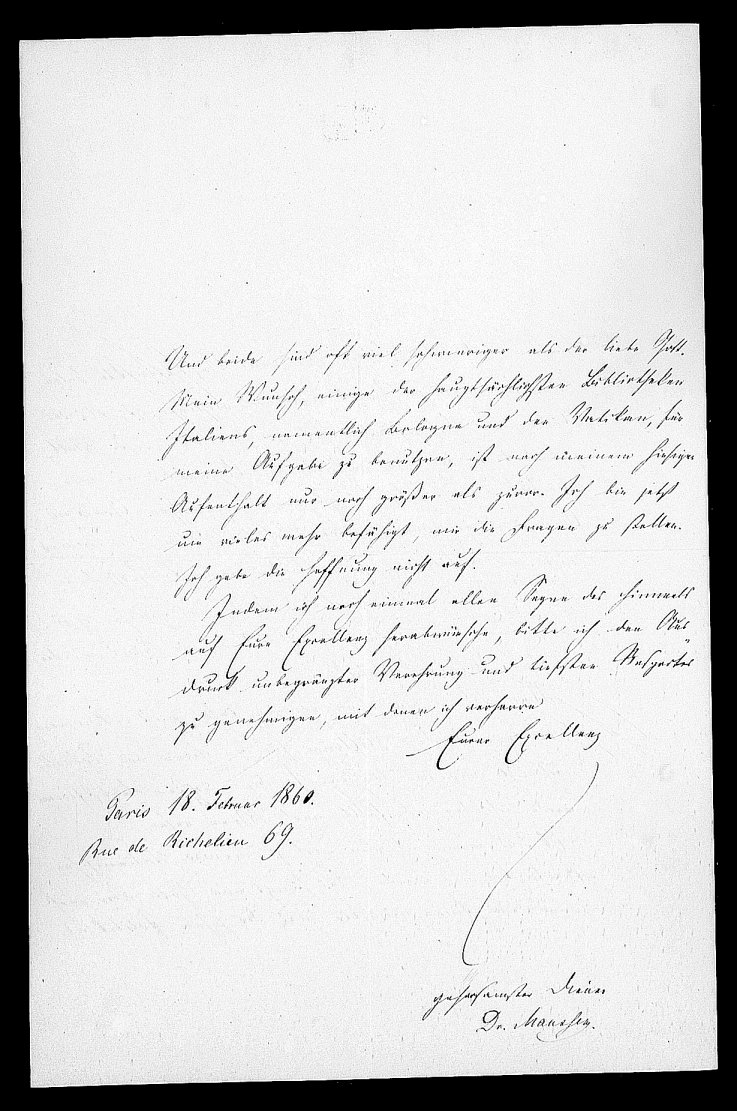 Und beide sind oft viel schwieriger als der liebe Gott.
Mein Wunsch, einige der hauptsächlichsten Bibliotheken
Italiens, namentlich Bologna und den Vatikan, für
meine Aufgabe zu benutzen, ist nach meinem hiesigen
Aufenthalt nur noch größer als zuvor. Ich bin jetzt
um vieles mehr befähigt, mir die Fragen zu stellen.
Ich gebe die Hoffnung nicht auf.
Indem ich noch einmal allen Segen des Himmels
auf Eure Excellenz herabwünsche, bitte ich den Aus-
druck unbegränzter Verehrung und tiefsten Respectes
zu genehmigen, mit denen ich verharre
Eurer Excellenz
Paris 18. Februar 1860.
Rue de Richelieu 69.
gehorsamster Diener
Dr.